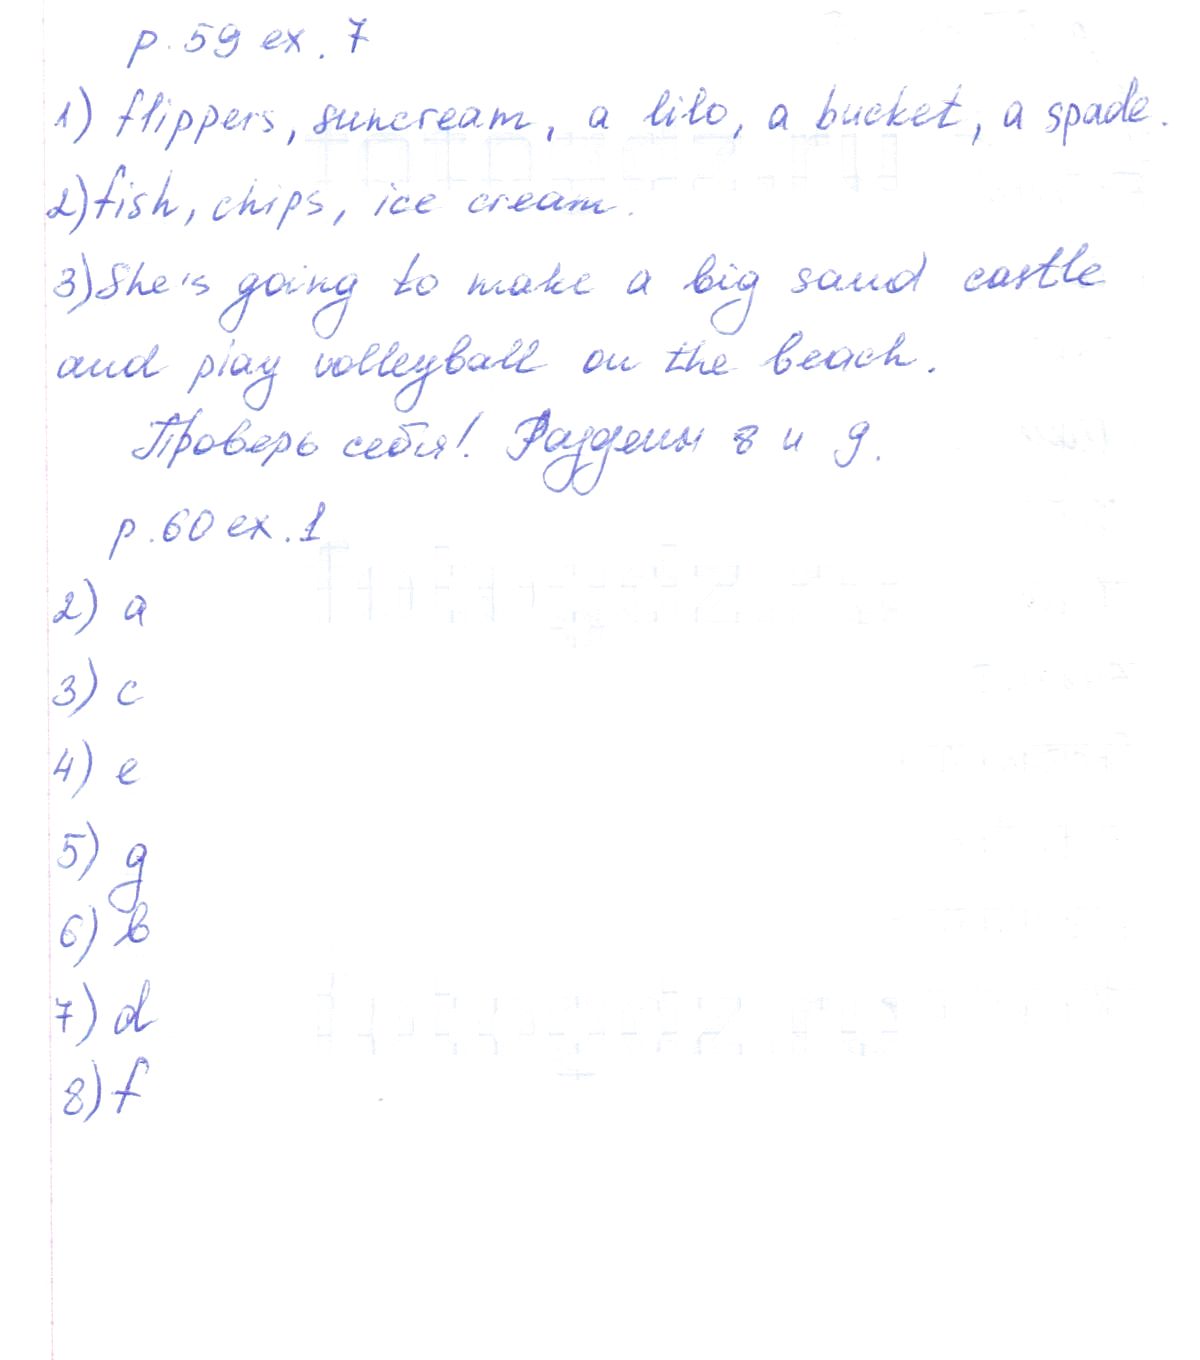 p. 59 ex. 7
1) flippers, suncream, a lilo, a bucket, a spade.
2) fish, chips, ice cream.
3) She's going to make a big sand castle
and play volleyball on the beach.
Проверь себя! Разделы 8 и 9.
p. 60 ex. 1
2) a
3) c
4) e
5) g
6) b
7) d
8) f